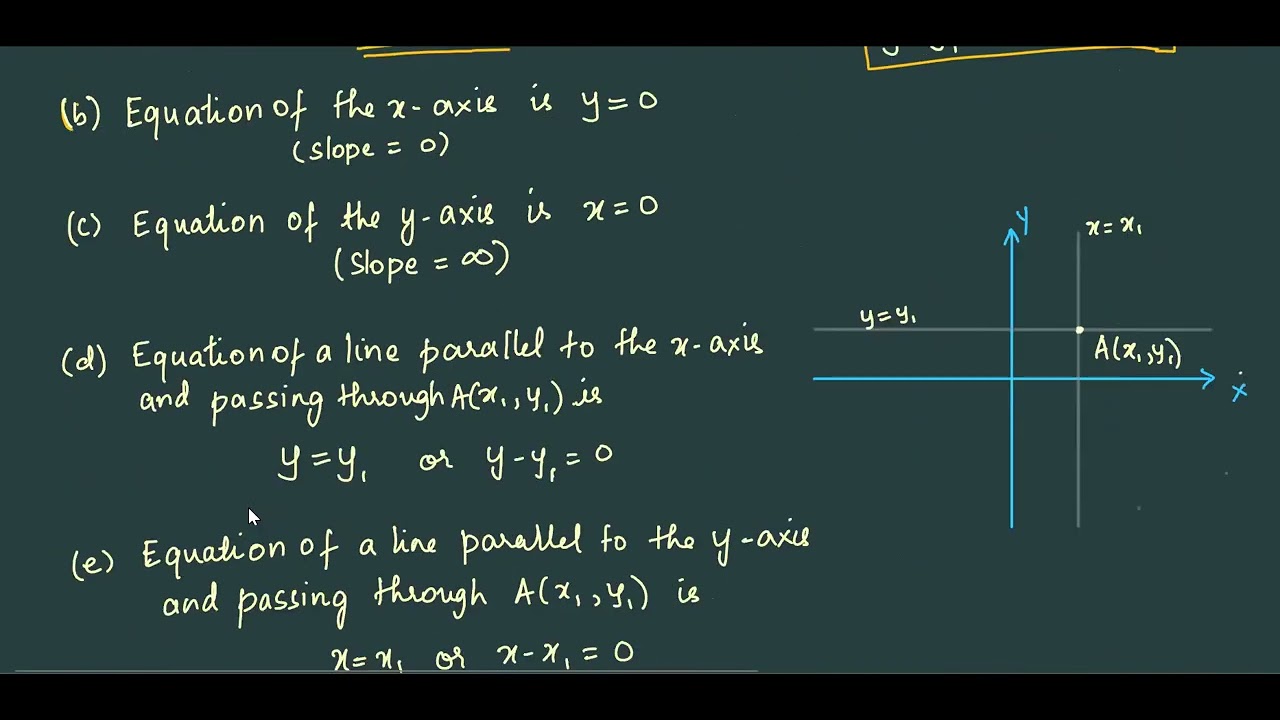 (b) Equation of the x-axis is y=0
(slope = 0)
(c) Equation of the y-axis is x=0
(slope = ∞)
(d) Equation of a line parallel to the x-axis
and passing through A(x₁,y₁) is
y=y₁ or y-y₁=0
(e) Equation of a line parallel to the y-axis
and passing through A(x₁,y₁) is
x=x₁ or x-x₁=0
y
x=x₁
y=y₁
A(x₁,y₁)
x